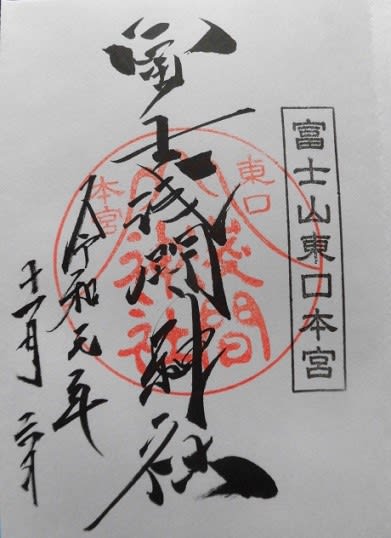 富士山東口本宮
冨士浅間神社
東口
本宮
浅間
神社
令和元年
十一月二日